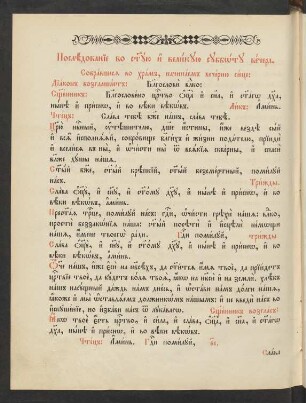 Послѣдованїе во ст҃ꙋю и҆ вели́кꙋю сꙋббѡ́тꙋ ве́чера.
Собра́вшесѧ во хра́мъ, начина́емъ вече́рню си́це:
Дїа́конъ возглаша́етъ: Благословѝ влⷣко:
Сщ҃е́нникъ: Блгⷭ҇ове́но црⷭ҇тво ѻ҆ц҃а̀ и҆ сн҃а, и҆ ст҃а́гѡ дх҃а,
ны́нѣ и҆ при́снѡ, и҆ во вѣ́ки вѣкѡ́въ. Ли́къ: А҆ми́нь.
Чте́цъ: Сла́ва тебѣ̀ бж҃е на́шъ, сла́ва тебѣ̀.
Цр҃ю̀ нбⷭ҇ный, ᲂу҆тѣ́шителю, дш҃е и́стины, и҆́же вездѣ̀ сы́й
и҆ всѧ̑ и҆сполнѧ́ѧй, сокро́вище бл҃ги́хъ и҆ жи́зни пода́телю, прїидѝ
и҆ всели́сѧ въ ны̀, и҆ ѡ҆чи́сти ны̀ ѿ всѧ́кїѧ скве́рны, и҆ сп҃сѝ
бл҃же дꙋ́шы на́шѧ.
Ст҃ы́й бж҃е, ст҃ы́й крѣ́пкїй, ст҃ы́й безсме́ртный, поми́лꙋй
на́съ. Три́жды.
Сла́ва ѻ҆ц҃ꙋ̀, и҆ сн҃ꙋ, и҆ ст҃о́мꙋ дх҃ꙋ, и҆ ны́нѣ и҆ при́снѡ, и҆ во
вѣ́ки вѣкѡ́въ, а҆ми́нь.
Прест҃а́ѧ трⷪ҇це, поми́лꙋй на́съ: гдⷭ҇и, ѡ҆чи́сти грѣхѝ на́шѧ: влⷣко,
простѝ беззакѡ́нїѧ на̑ша: ст҃ы́й, посѣтѝ и҆ и҆сцѣлѝ не́мѡщи
на́шѧ, и҆́мене твоегѡ̀ ра́ди. Гдⷭ҇и поми́лꙋй, три́жды
Сла́ва ѻ҆ц҃ꙋ̀, и҆ сн҃ꙋ, и҆ ст҃о́мꙋ дх҃ꙋ, и҆ ны́нѣ и҆ при́снѡ, и҆ во вѣ́ки
вѣкѡ́въ, а҆ми́нь.
Ѻ҆́ч҃е на́шъ, и҆́же є҆сѝ на нб҃сѣ́хъ, да ст҃и́тсѧ и҆́мѧ твоѐ, да прїи́детъ
црⷭ҇твїе твоѐ, да бꙋ́детъ во́лѧ твоѧ̀, ꙗ҆́кѡ на нб҃сѝ и҆ на землѝ. хлѣ́бъ
на́шъ насꙋ́щный да́ждь на́мъ дне́сь, и҆ ѡ҆ста́ви на́мъ до́лги на́шѧ,
ꙗ҆́коже и҆ мы̀ ѡ҆ставлѧ́емъ должникѡ́мъ на́шымъ: и҆ не введѝ на́съ во
и҆скꙋше́нїе, но и҆зба́ви на́съ ѿ лꙋка́вагѡ. Сщ҃е́нникъ возгла́съ:
Ꙗ҆́кѡ твоѐ є҆́сть црⷭ҇тво, и҆ си́ла, и҆ сла́ва, ѻ҆ц҃а̀, и҆ сн҃а, и҆ ст҃а́гѡ
дх҃а, ны́нѣ и҆ при́снѡ, и҆ во вѣ́ки вѣкѡ́въ.
Чте́цъ: А҆ми́нь. Гдⷭ҇и поми́лꙋй,
Сла́ва